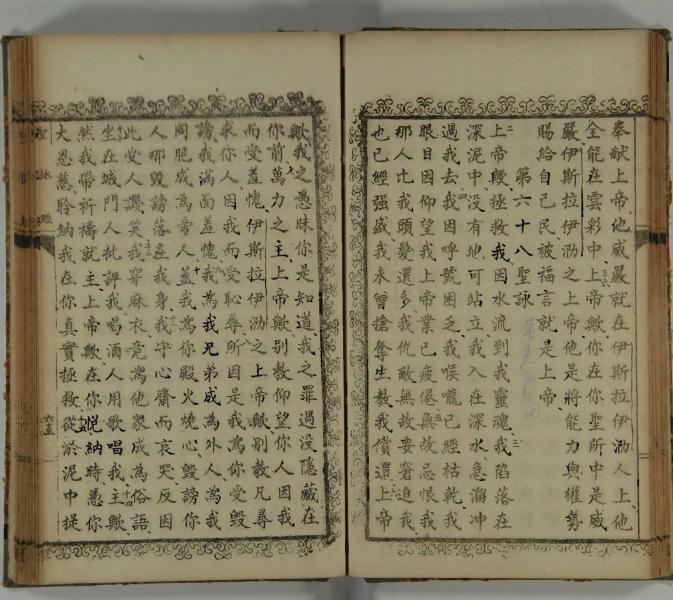 奉献上帝他威嚴就在伊斯拉伊泐人上他
全能在雲彩中上帝歟你在你聖所中是威
嚴伊斯拉伊泐之上帝他是將能力與權勢
賜給自己民被福言就是上帝
第六十八聖詠
上帝歟拯救我因水流到我靈魂我陷落在
深泥中没有地可站立我入在深水急溜冲
過我去我因呼號困乏我喉嚨已經枯乾我
眼目因仰望我上帝業已疲倦無故忌恨我
那人比我頭髮還多我仇敵無故要窘迫我
也已經强盛我未曾搶奪生教我償還上帝
歟我之愚昧你是知道我之罪過没隱藏在
你前萬力之主上帝歟别教仰望你人因我
而受羞愧伊斯拉伊泐之上帝歟别教凡尋
求你人因我而受恥辱所因是我為你受毀
謗我滿面羞愧我為我兄弟成為外人為我
同胞成為旁人蓋我為你殿火燒心毀謗你
人那毀謗落在我身我守心齋而哀哭反因
此受人譏笑我穿麻衣竟為他衆成為俗語
坐在城門人批評我喝酒人用歌唱我主歟
然我帶祈禱就主上帝歟在你悦納時憑你
大恩慈聆納我在你真實拯救從淤泥中提
聖詠經
六五